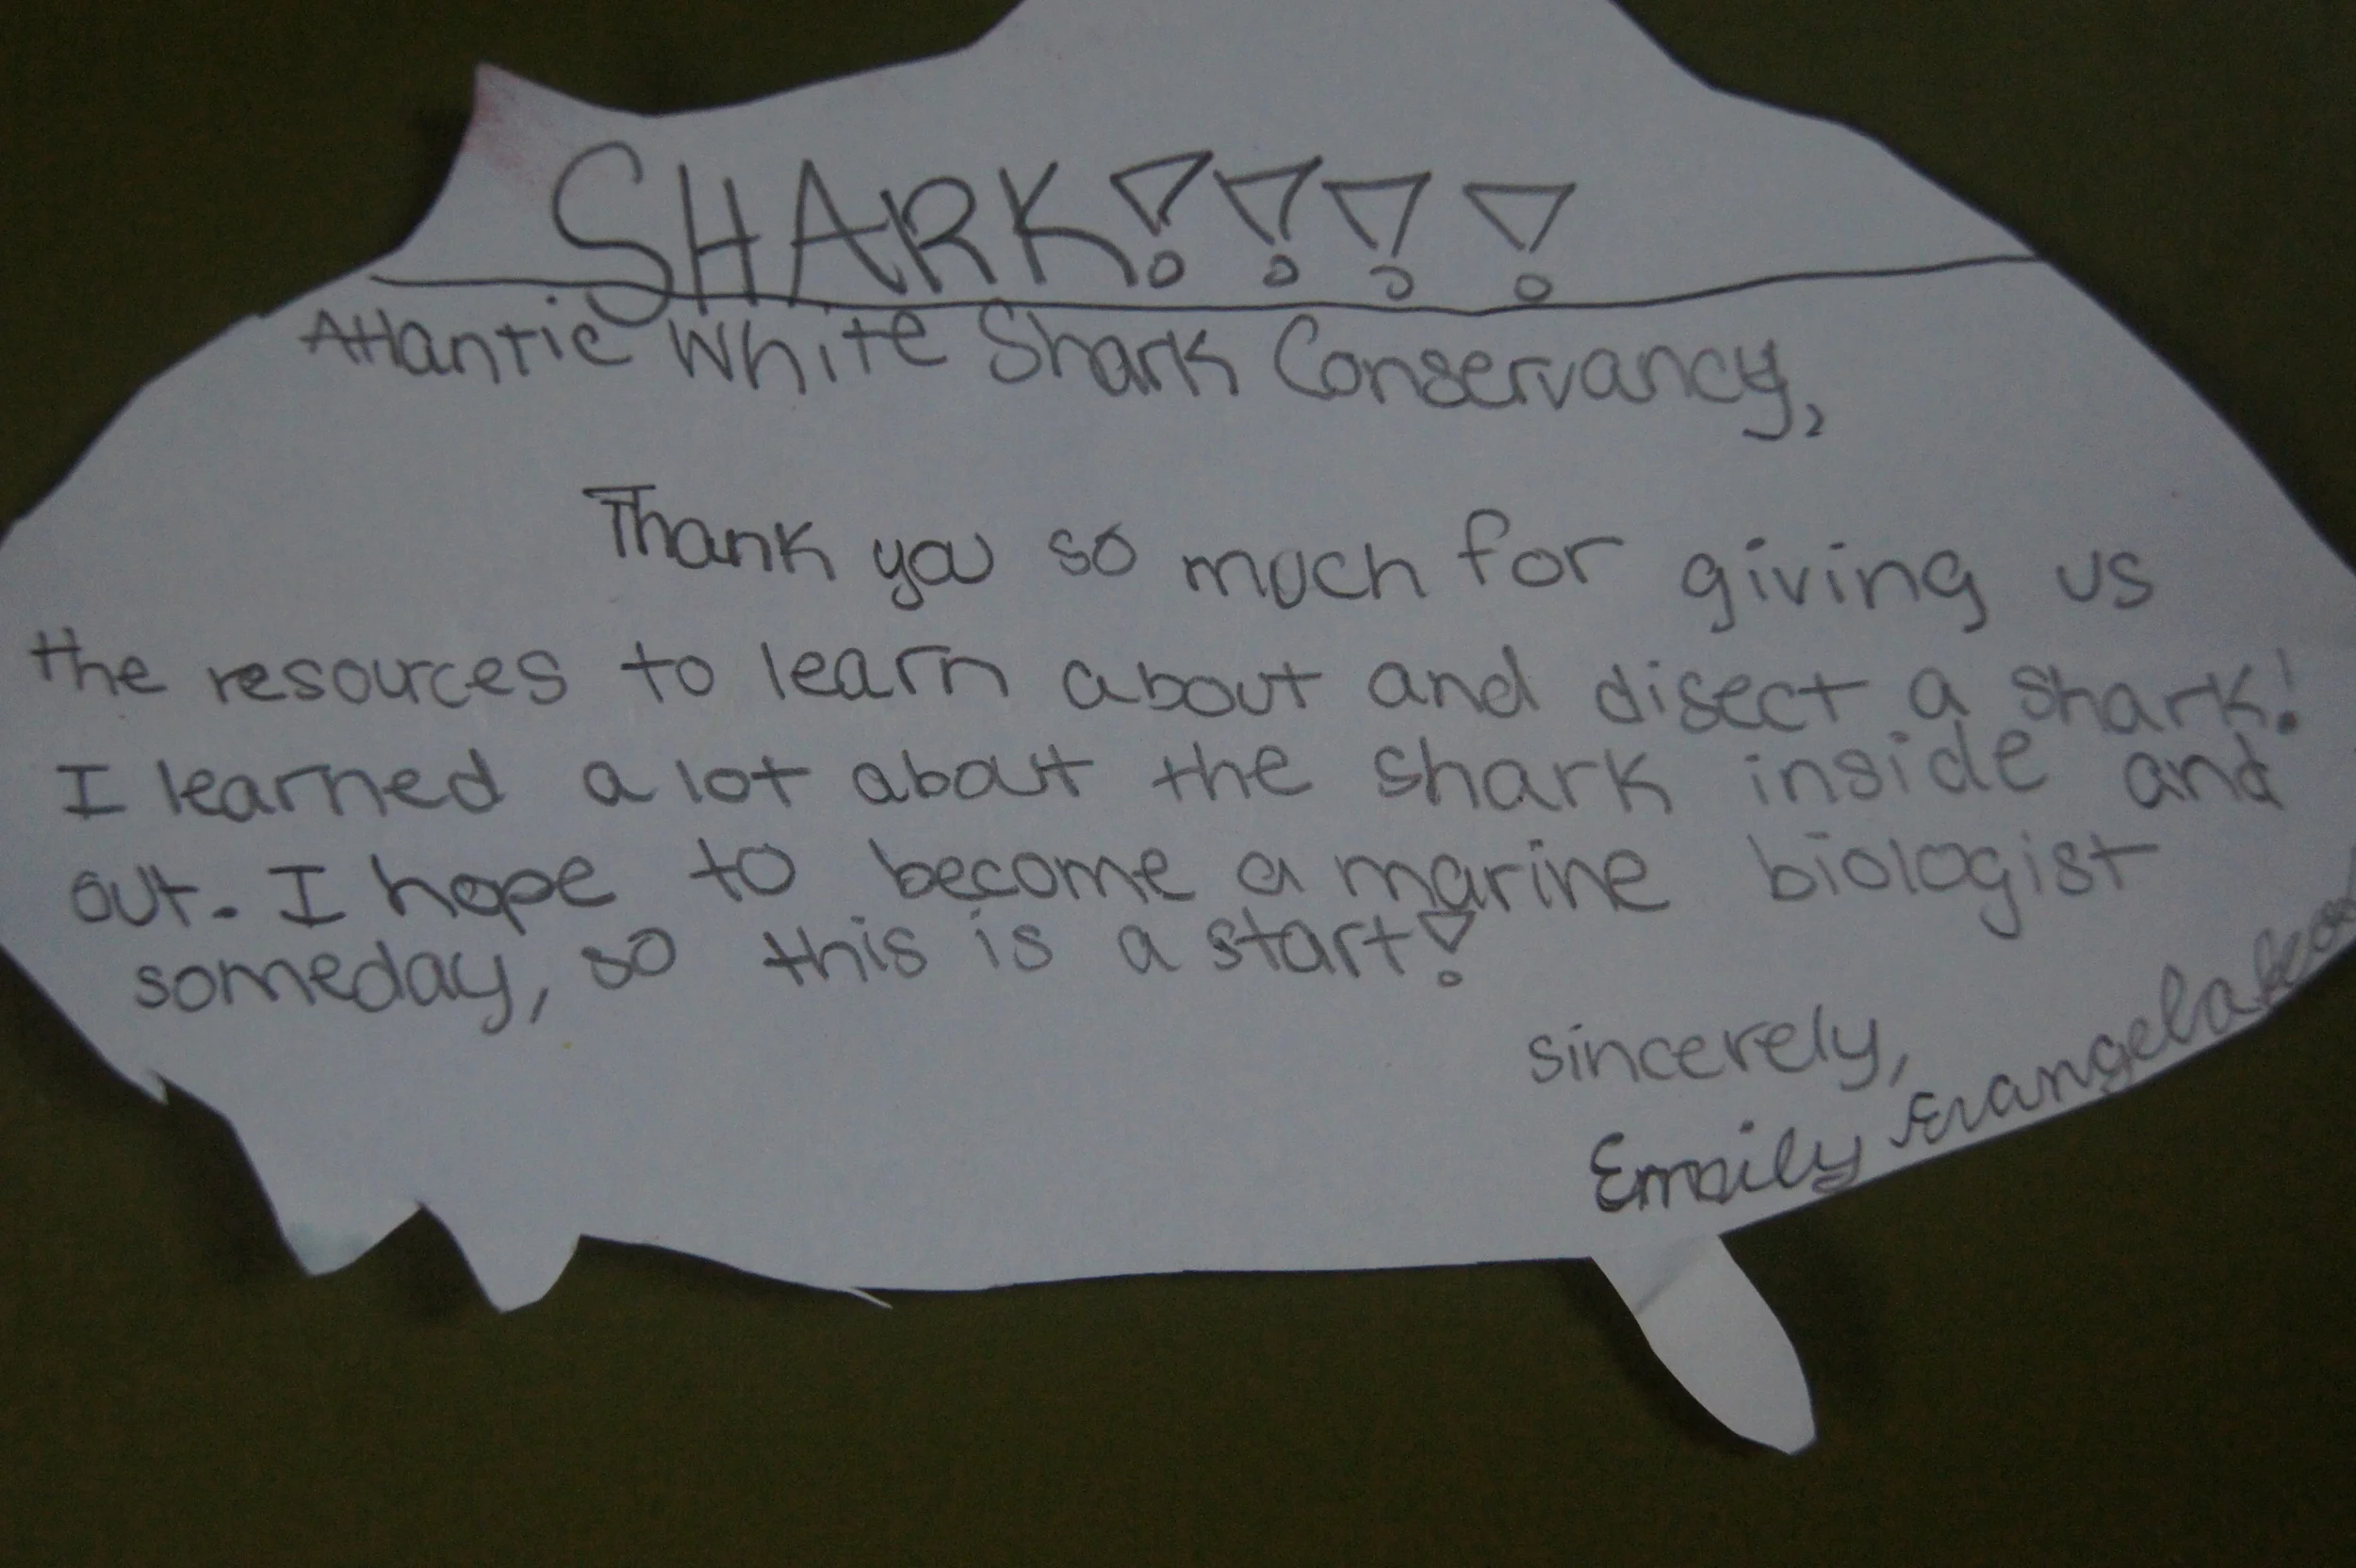 SHARK!!!!
Atlantic White Shark Conservancy,
Thank you so much for giving us
the resources to learn about and disect a shark!
I learned a lot about the shark inside and
out. I hope to become a marine biologist
someday, so this is a start!
sincerely,
Emily Evangelakos